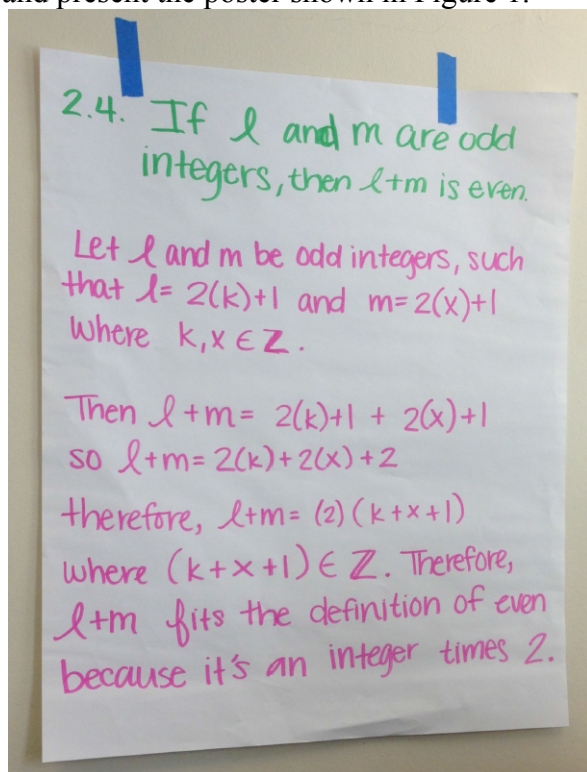 and present the poster shown in Figure 1.
2.4. If l and m are odd
integers, then l+m is even.
Let l and m be odd integers, such
that l= 2(k)+1 and m= 2(x)+1
where k,x ∈ Z.
Then l+m= 2(k)+1 + 2(x)+1
so l+m= 2(k)+2(x)+2
therefore, l+m= (2)(k+x+1)
where (k+x+1) ∈ Z. Therefore,
l+m fits the definition of even
because it's an integer times 2.